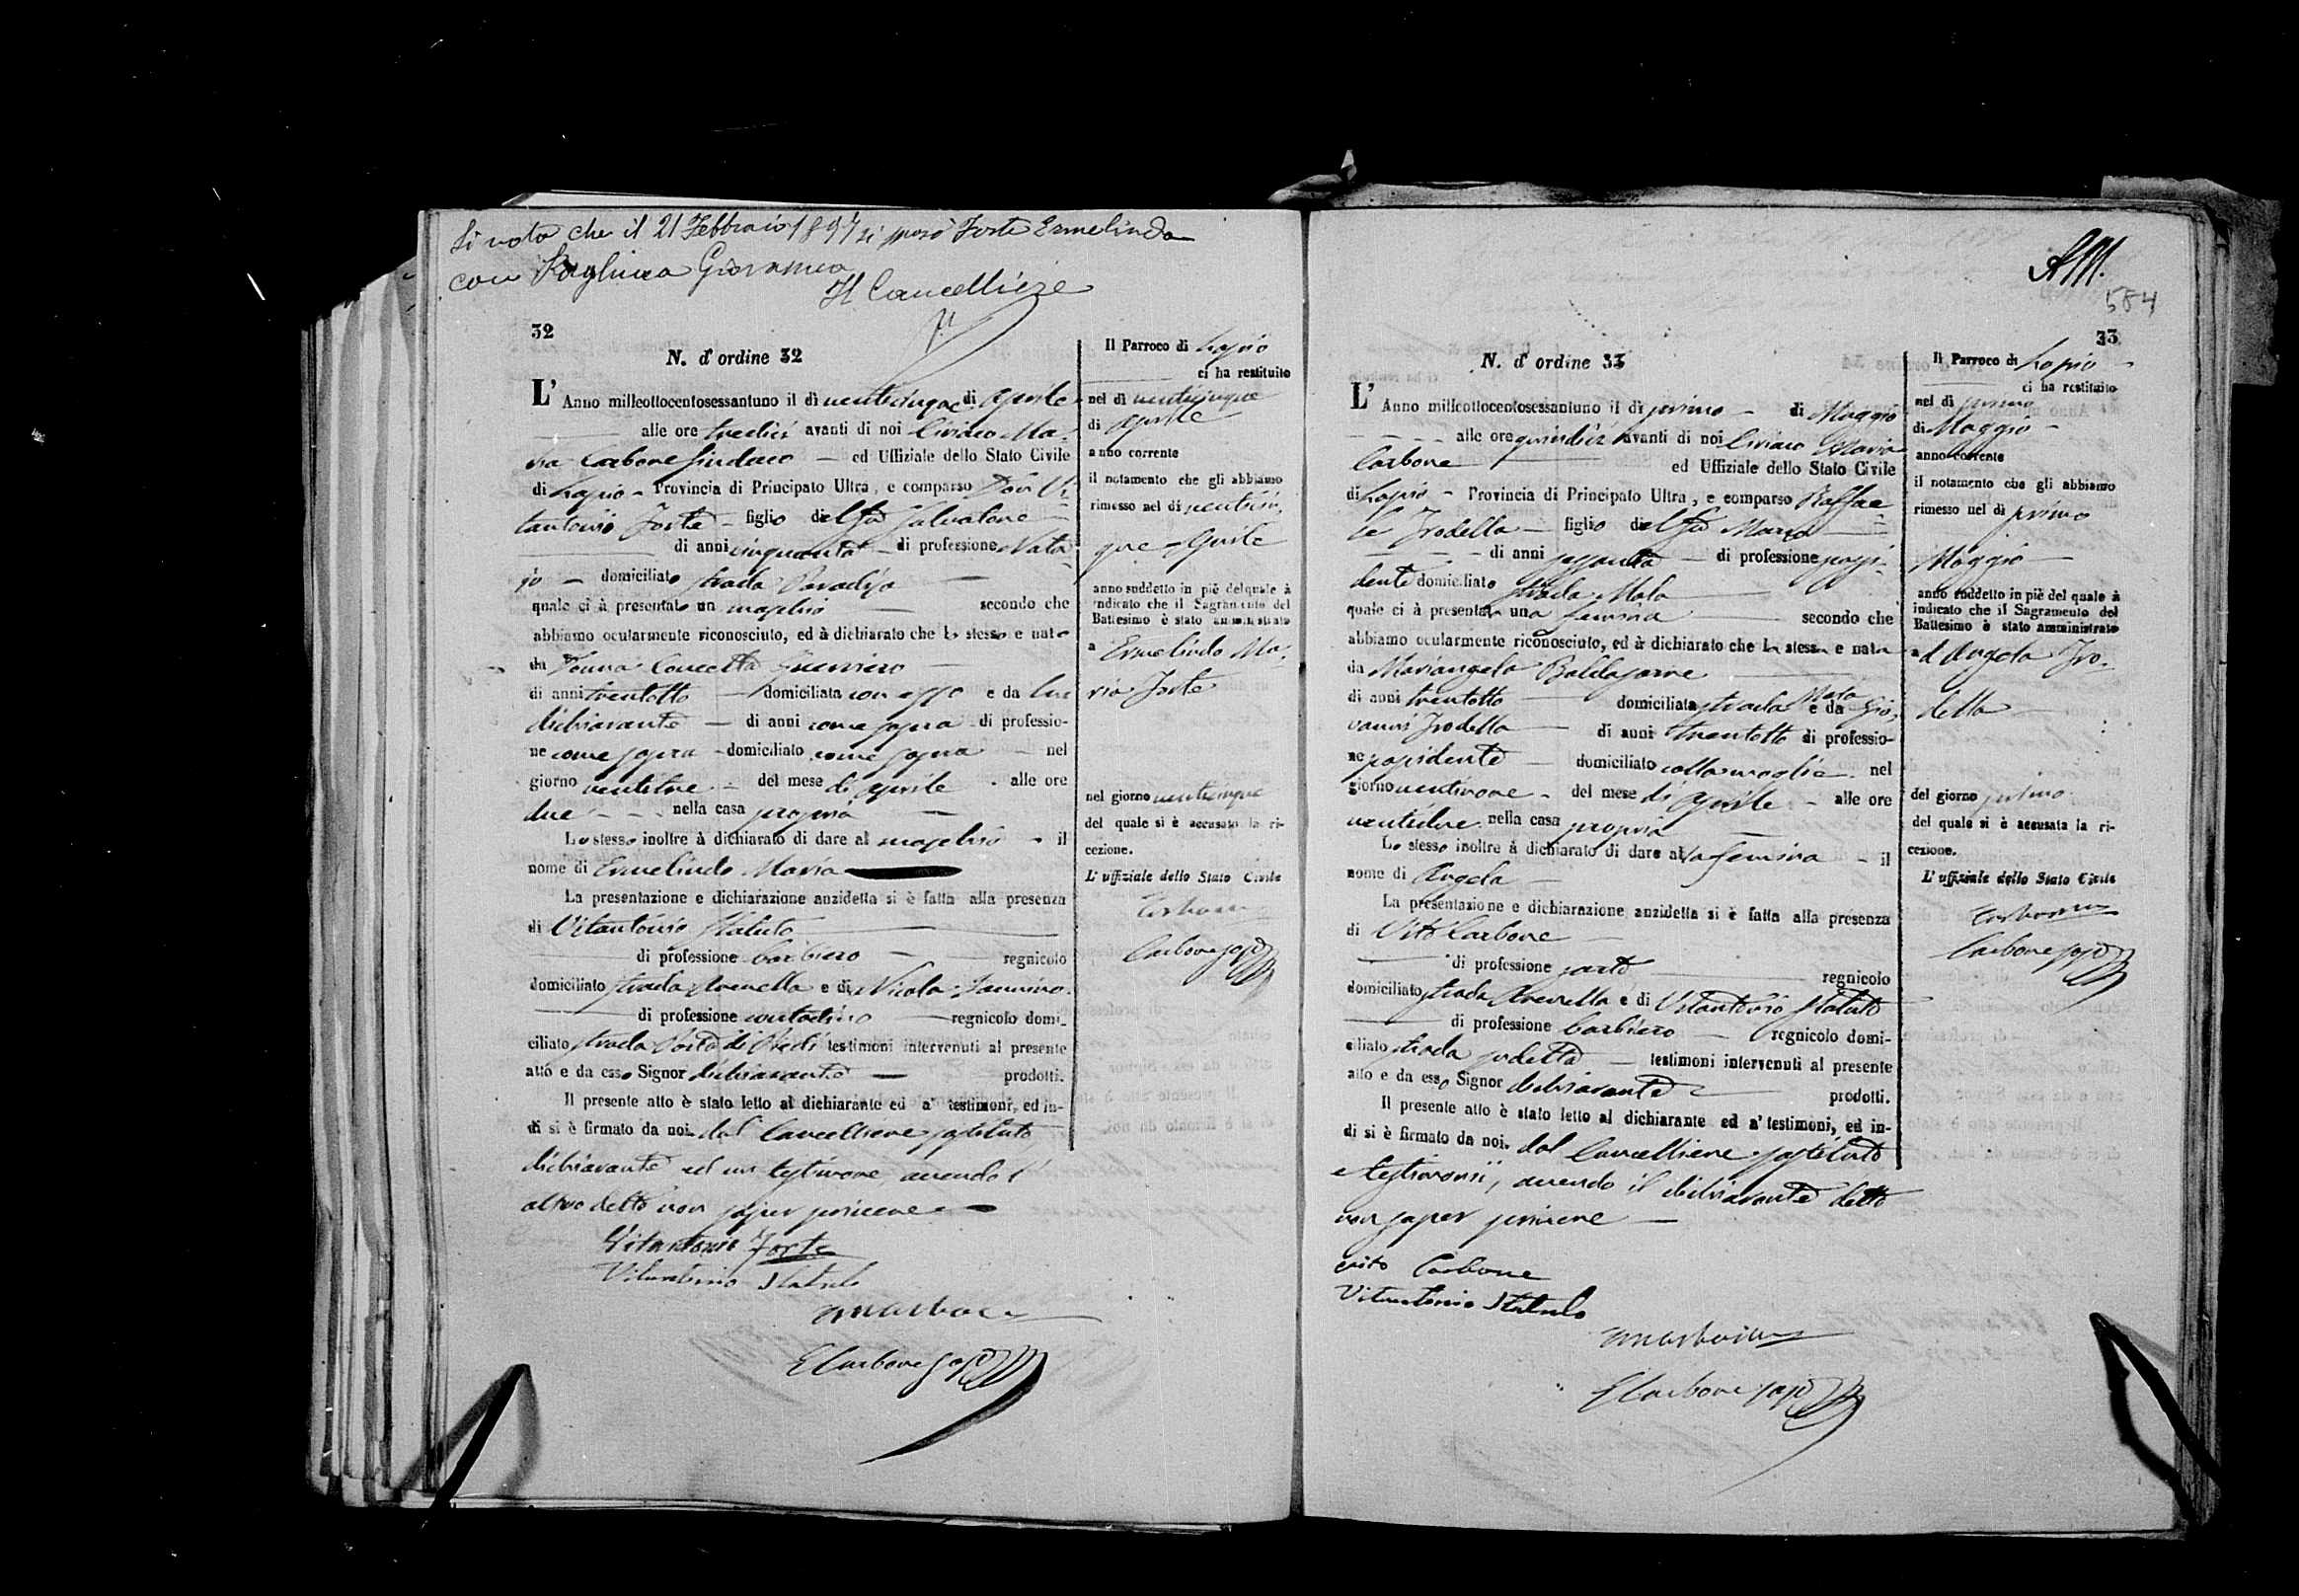 Si nota che il 21 Febbraio 1897 si sposò Forte Ermelindo
con Pagliuca Giovannea
Il Cancelliere
32
N. d'ordine 32
L' Anno milleottocentosessantuno il dì venticinque di Aprile
alle ore tredici avanti di noi Ciriaco Ma-
ria Carbone Sindaco ed Uffiziale dello Stato Civile
di Lapio Provincia di Principato Ultra, e comparso Don Vi-
tantonio Forte figlio del fù Salvatore
di anni cinquanta di professione Nota-
jo domiciliato strada Paradiso
quale ci à presentato un maschio secondo che
abbiamo ocularmente riconosciuto, ed à dichiarato che lo stesso e nato
da Donna Concetta Guerriero
di anni trentotto domiciliata con esso e da lui
dichiarante di anni come sopra di professio-
ne come sopra domiciliato come sopra nel
giorno ventitre del mese di Aprile alle ore
due nella casa propria
Lo stesso inoltre à dichiarato di dare al maschio il
nome di Ermelindo Maria
La presentazione e dichiarazione anzidetta si è fatta alla presenza
di Vitantonio Statuto
di professione barbiero regnicolo
domiciliato strada e di Nicola Iannino
di professione contadino regnicolo domi-
ciliato strada Porta di testimoni intervenuti al presente
atto e da esso Signor dichiarante prodotti.
Il presente atto è stato letto al dichiarante ed a' testimoni, ed in-
di si è firmato da noi dal Cancelliere sostituto,
dichiarante ed un testimone, avendo l'
altro detto non saper scrivere
Vitantonio Forte
Vitantonio Statuto
E Carbone sosto
Il Parroco di Lapio
ci ha restituito
nel dì venticinque
di Aprile
anno corrente
il notamento che gli abbiamo
rimesso nel dì venticin-
que Aprile
anno suddetto in piè del quale à
indicato che il Sagramento del
Battesimo è stato amministrato
a Ermelindo Ma-
ria Forte
nel giorno venticinque
del quale si è accusata la ri-
cezione.
L' uffiziale dello Stato Civile
Carbone sosto
584
33
N. d'ordine 33
L' Anno milleottocentosessantuno il dì primo di Maggio
alle ore quindici avanti di noi Ciriaco Maria
Carbone ed Uffiziale dello Stato Civile
di Lapio Provincia di Principato Ultra, e comparso Raffae-
le Trodella figlio del fù Marco
di anni sessanta di professione possi-
dente domiciliato strada Mola
quale ci à presentata una femina secondo che
abbiamo ocularmente riconosciuto, ed à dichiarato che la stessa e nata
da Mariangela Baldassarre
di anni trentotto domiciliata strada Mola e da Gio-
vanni Trodella di anni trentotto di professio-
ne possidente domiciliato colla moglie nel
giorno ventinove del mese di Aprile alle ore
ventidue nella casa propria
Lo stesso inoltre à dichiarato di dare alla femina il
nome di Angela
La presentazione e dichiarazione anzidetta si è fatta alla presenza
di Vito Carbone
di professione sarto regnicolo
domiciliato strada e di Vitantonio Statuto
di professione barbiero regnicolo domi-
ciliato strada sudetta testimoni intervenuti al presente
atto e da esso Signor dichiarante prodotti.
Il presente atto è stato letto al dichiarante ed a' testimoni, ed in-
di si è firmato da noi, dal Cancelliere sostituto
e testimonii, avendo il dichiarante detto
non saper scrivere
Vito Carbone
Vitantonio Statuto
E Carbone sosto
Il Parroco di Lapio
ci ha restituito
nel dì primo
di Maggio
anno corrente
il notamento che gli abbiamo
rimesso nel dì primo
Maggio
anno suddetto in piè del quale à
indicato che il Sagramento del
Battesimo è stato amministrato
ad Angela Tro-
della
del giorno primo
del quale si è accusata la ri-
cezione.
L' uffiziale dello Stato Civile
Carbone sosto